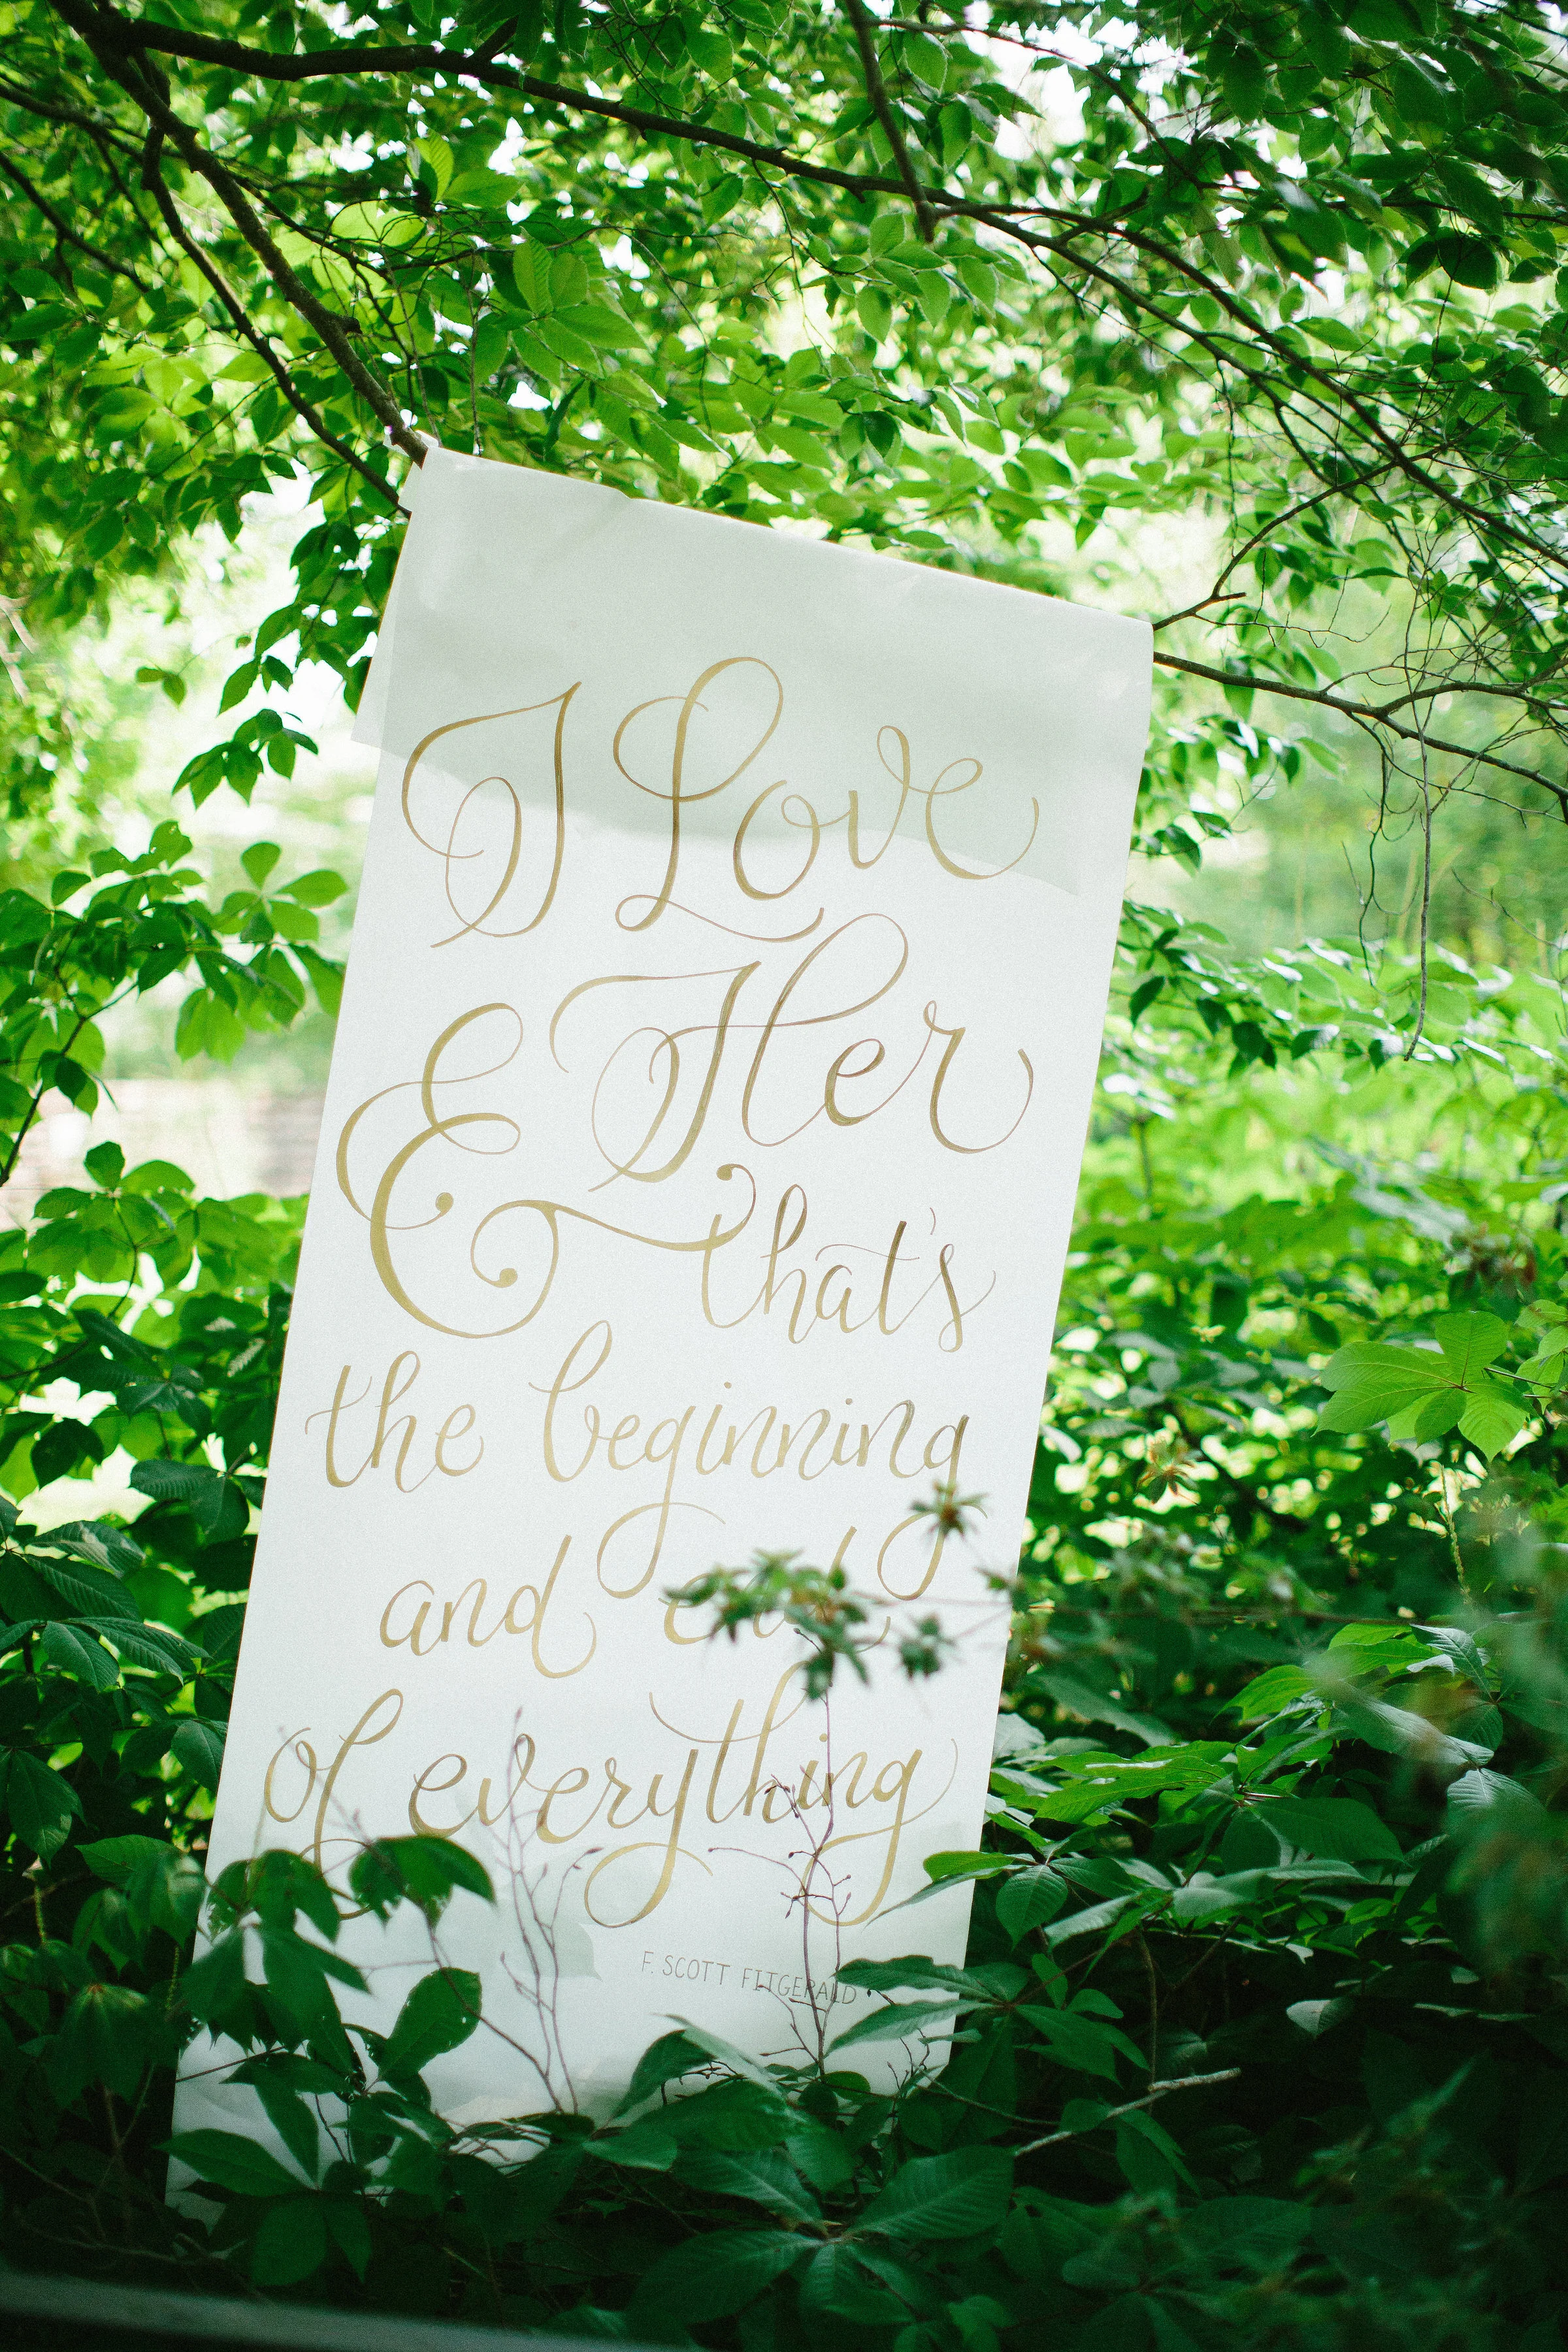 I Love
Her
& that's
the beginning
and end
of everything
F. SCOTT FITGERALD